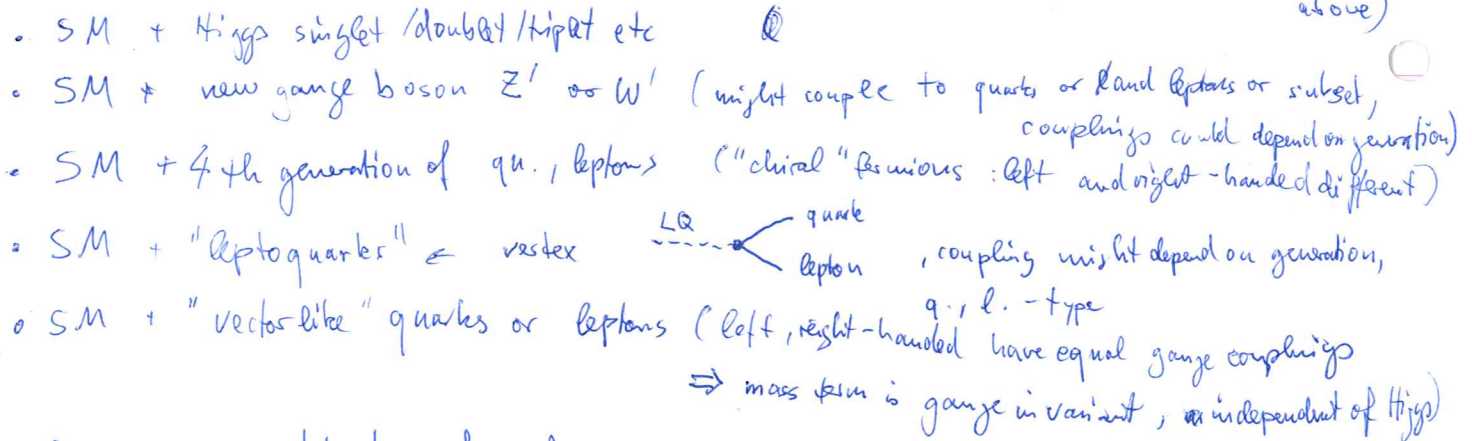 above)
• SM + Higgs singlet/doublet/triplet etc
• SM + new gauge boson Z' or W' (might couple to quarks or / and leptons or subset,
couplings could depend on generation)
• SM + 4th generation of qu., leptons ("chiral" fermions : left and right-handed different)
• SM + "leptoquarks" ← vertex LQ quark lepton , coupling might depend on generation,
q., l. - type
• SM + "vectorlike" quarks or leptons (left, right-handed have equal gauge couplings
⇒ mass term is gauge invariant, independent of Higgs)